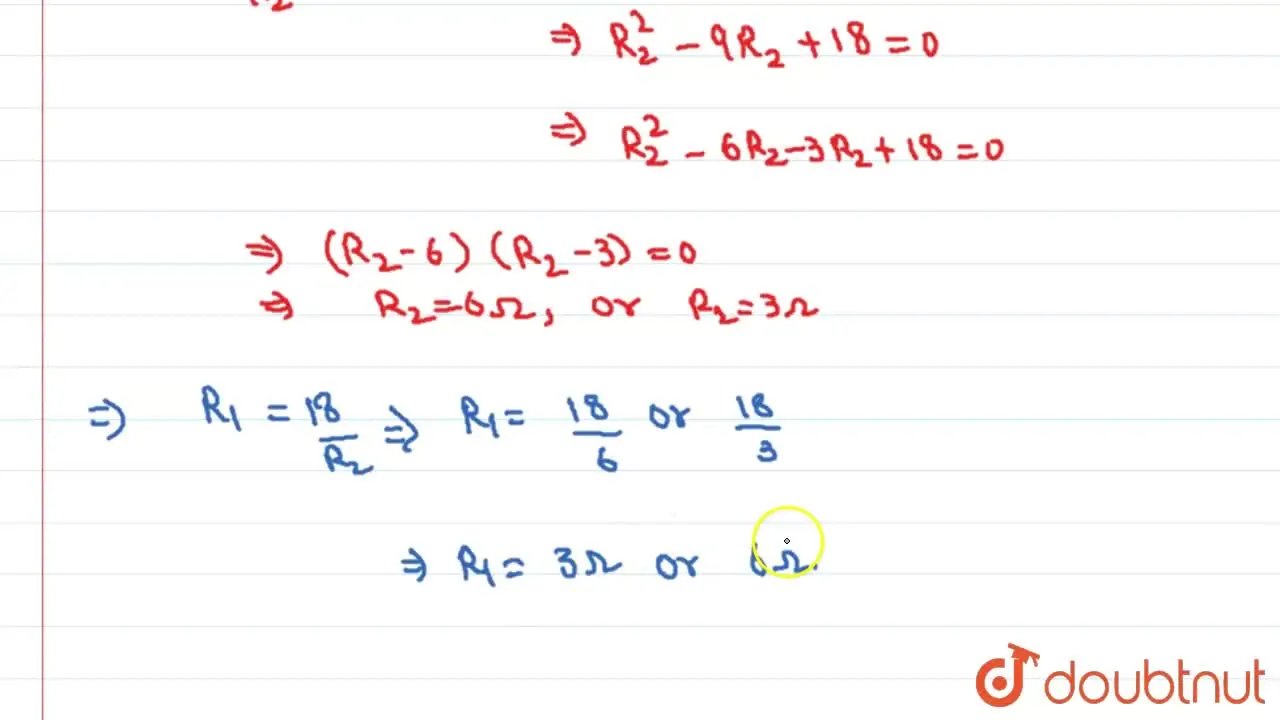 R₂
⇒ R₂² - 9R₂ + 18 = 0
⇒ R₂² - 6R₂ - 3R₂ + 18 = 0
⇒ (R₂ - 6) (R₂ - 3) = 0
⇒ R₂ = 6Ω, or R₂ = 3Ω
⇒ R₁ = 18/R₂ ⇒ R₁ = 18/6 or 18/3
⇒ R₁ = 3Ω or 6Ω.
doubtnut